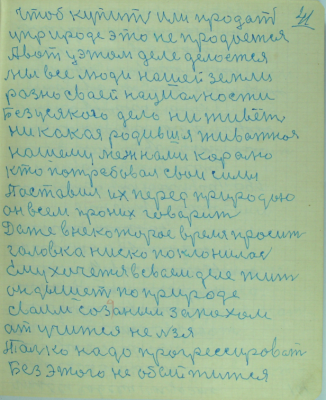 41
Чтоб купит или продат
у природе это не продается
А вот у этом деле делается
Мы все люди нашей земли
разно своей нацналности
Без усякого дело ни живет
никакая родившя животная
нашему
кто потребовал свои силы
Поставил их перед природою
он всем проних говарит
Даже в некоторое время просит
галовка ниско поклонилас
Ему хочетя всваем деле жит
он дышет по природе
сваим созданим запахом
ат учится не лзя
Толко надо прогрессироват
Без этого не обойтится